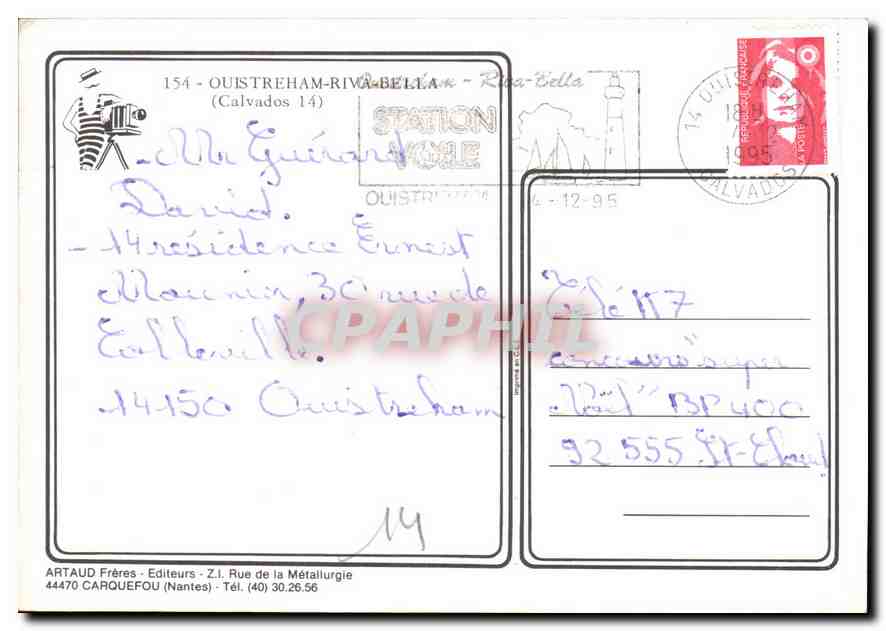 154 - OUISTREHAM-RIVA-BELLA
(Calvados 14)
Ouistreham - Riva-Bella
STATION
VOILE
OUISTREHAM 4-12-95
14 OUISTREHAM
18 H
1995
CALVADOS
RÉPUBLIQUE FRANÇAISE
LA POSTE
- Mr Guérard
David.
- 14 résidence Ernest
30 rue de
Colleville.
14150 Ouistreham
Télé K7
concours "super
BP 400
92 555 St-
14
CPAPHIL
Imprimé en C.E.E.
ARTAUD Frères - Editeurs - Z.I. Rue de la Métallurgie
44470 CARQUEFOU (Nantes) - Tél. (40) 30.26.56